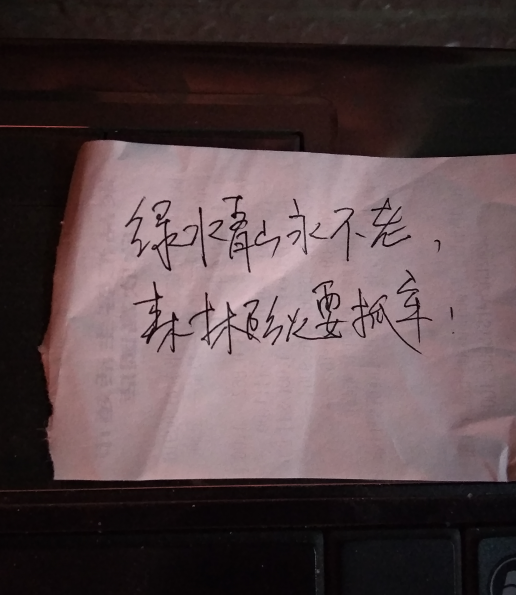 绿水青山永不老，
森林防火要抓牢！